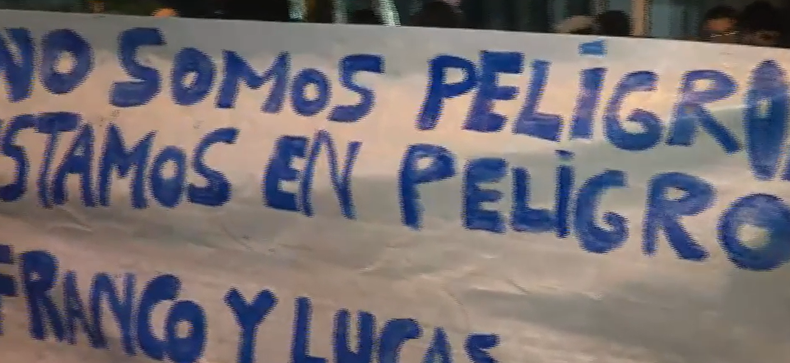 NO SOMOS PELIGRO
STAMOS EN PELIGRO
FRANCO Y LUCAS